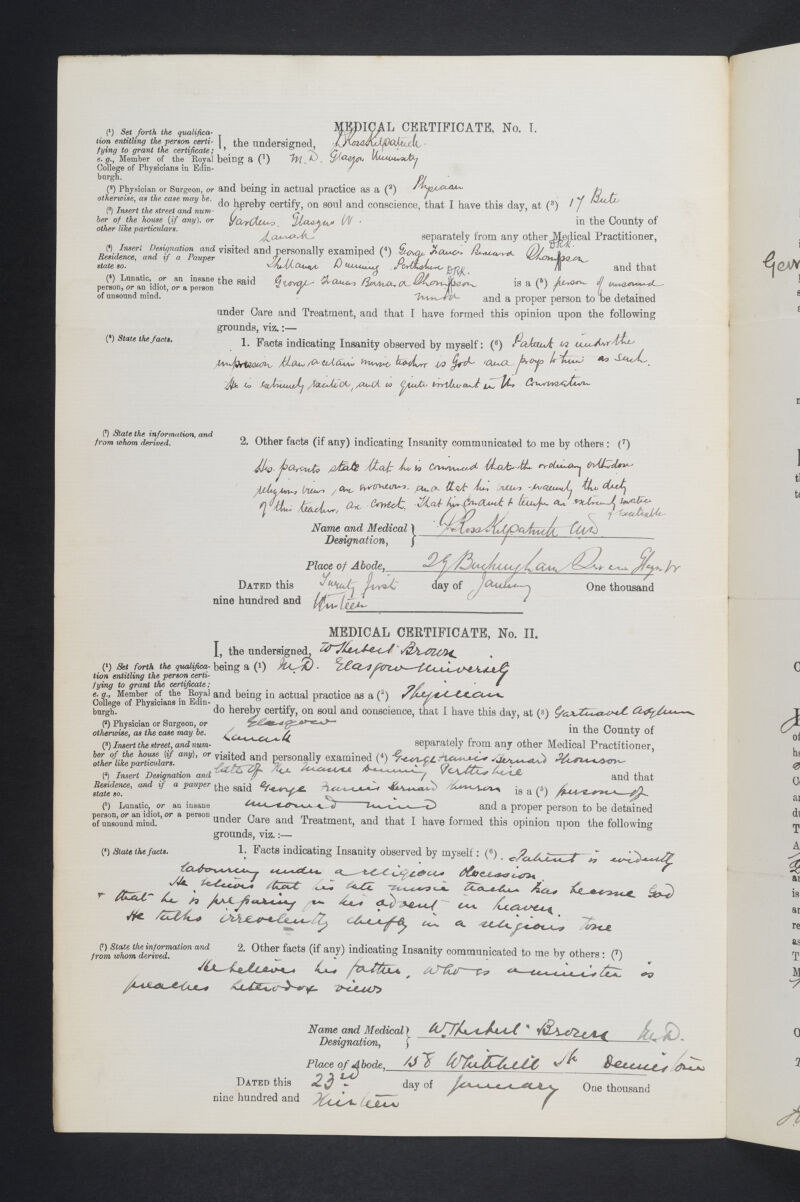 MEDICAL CERTIFICATE, No. I.
(¹) Set forth the qualifica-
tion entitling the person certi-
fying to grant the certificate;
e.g., Member of the Royal
College of Physicians in Edin-
burgh.
(²) Physician or Surgeon, or
otherwise, as the case may be.
(³) Insert the street and num-
ber of the house (if any), or
other like particulars.
(⁴) Insert Designation and
Residence, and if a Pauper
state so.
(⁵) Lunatic, or an insane
person, or an idiot, or a person
of unsound mind.
(⁶) State the facts.
(⁷) State the information, and
from whom derived.
I, the undersigned, J Ross Kilpatrick.
being a (¹) M.D. Glasgow University
and being in actual practice as a (²) Physician
do hereby certify, on soul and conscience, that I have this day, at (³) 17 Bute
Gardens. Glasgow W. in the County of
Lanark separately from any other Medical Practitioner,
visited and personally examined (⁴) George Francis Bernard Thompson
The Manse Dunning Perthshire and that
the said George Francis Bernard Thompson is a (⁵) person of unsound
mind and a proper person to be detained
under Care and Treatment, and that I have formed this opinion upon the following
grounds, viz.:—
1. Facts indicating Insanity observed by myself: (⁶) Patient is under the
impression that a certain music teacher is God and prays to him as such.
He is extremely excited, and is quite irrelevant in his conversation
2. Other facts (if any) indicating Insanity communicated to me by others: (⁷)
His parents state that he is convinced that the ordinary orthodox
religious views, are erroneous and that his views the deity
of this teacher, are correct. That his conduct & temper are extremely
& excitable
Name and Medical Designation, J Ross Kilpatrick M.D.
Place of Abode, 29 Buckingham Glasgow W
DATED this Twenty first day of January One thousand
nine hundred and thirteen
MEDICAL CERTIFICATE, No. II.
(¹) Set forth the qualifica-
tion entitling the person certi-
fying to grant the certificate;
e.g., Member of the Royal
College of Physicians in Edin-
burgh.
(²) Physician or Surgeon, or
otherwise, as the case may be.
(³) Insert the street, and num-
ber of the house (if any), or
other like particulars.
(⁴) Insert Designation and
Residence, and if a pauper
state so.
(⁵) Lunatic, or an insane
person, or an idiot, or a person
of unsound mind.
(⁶) State the facts.
(⁷) State the information and
from whom derived.
I, the undersigned, W Herbert Brown
being a (¹) M.D. Glasgow University
and being in actual practice as a (²) Physician
do hereby certify, on soul and conscience, that I have this day, at (³) Gartnavel Asylum
Glasgow in the County of
Lanark separately from any other Medical Practitioner,
visited and personally examined (⁴) George Francis Bernard Thomson
late of The Manse Dunning Perthshire and that
the said George Francis Bernard Thomson is a (⁵) persone of
unsound mind and a proper person to be detained
under Care and Treatment, and that I have formed this opinion upon the following
grounds, viz.:—
1. Facts indicating Insanity observed by myself: (⁶) Patient is evidently
labouring under a religious obsession.
He believes that his late music teacher has become God
+ that he is preparing for his advent in heaven.
He talks irrevelently chiefly in a religious tone
2. Other facts (if any) indicating Insanity communicated to me by others: (⁷)
He believes his father, who is a minister is
preaches heterodox views
Name and Medical Designation, W. Herbert Brown M.D.
Place of Abode, 138 Whitehill St Dennistoun
DATED this 23rd day of January One thousand
nine hundred and Thirteen